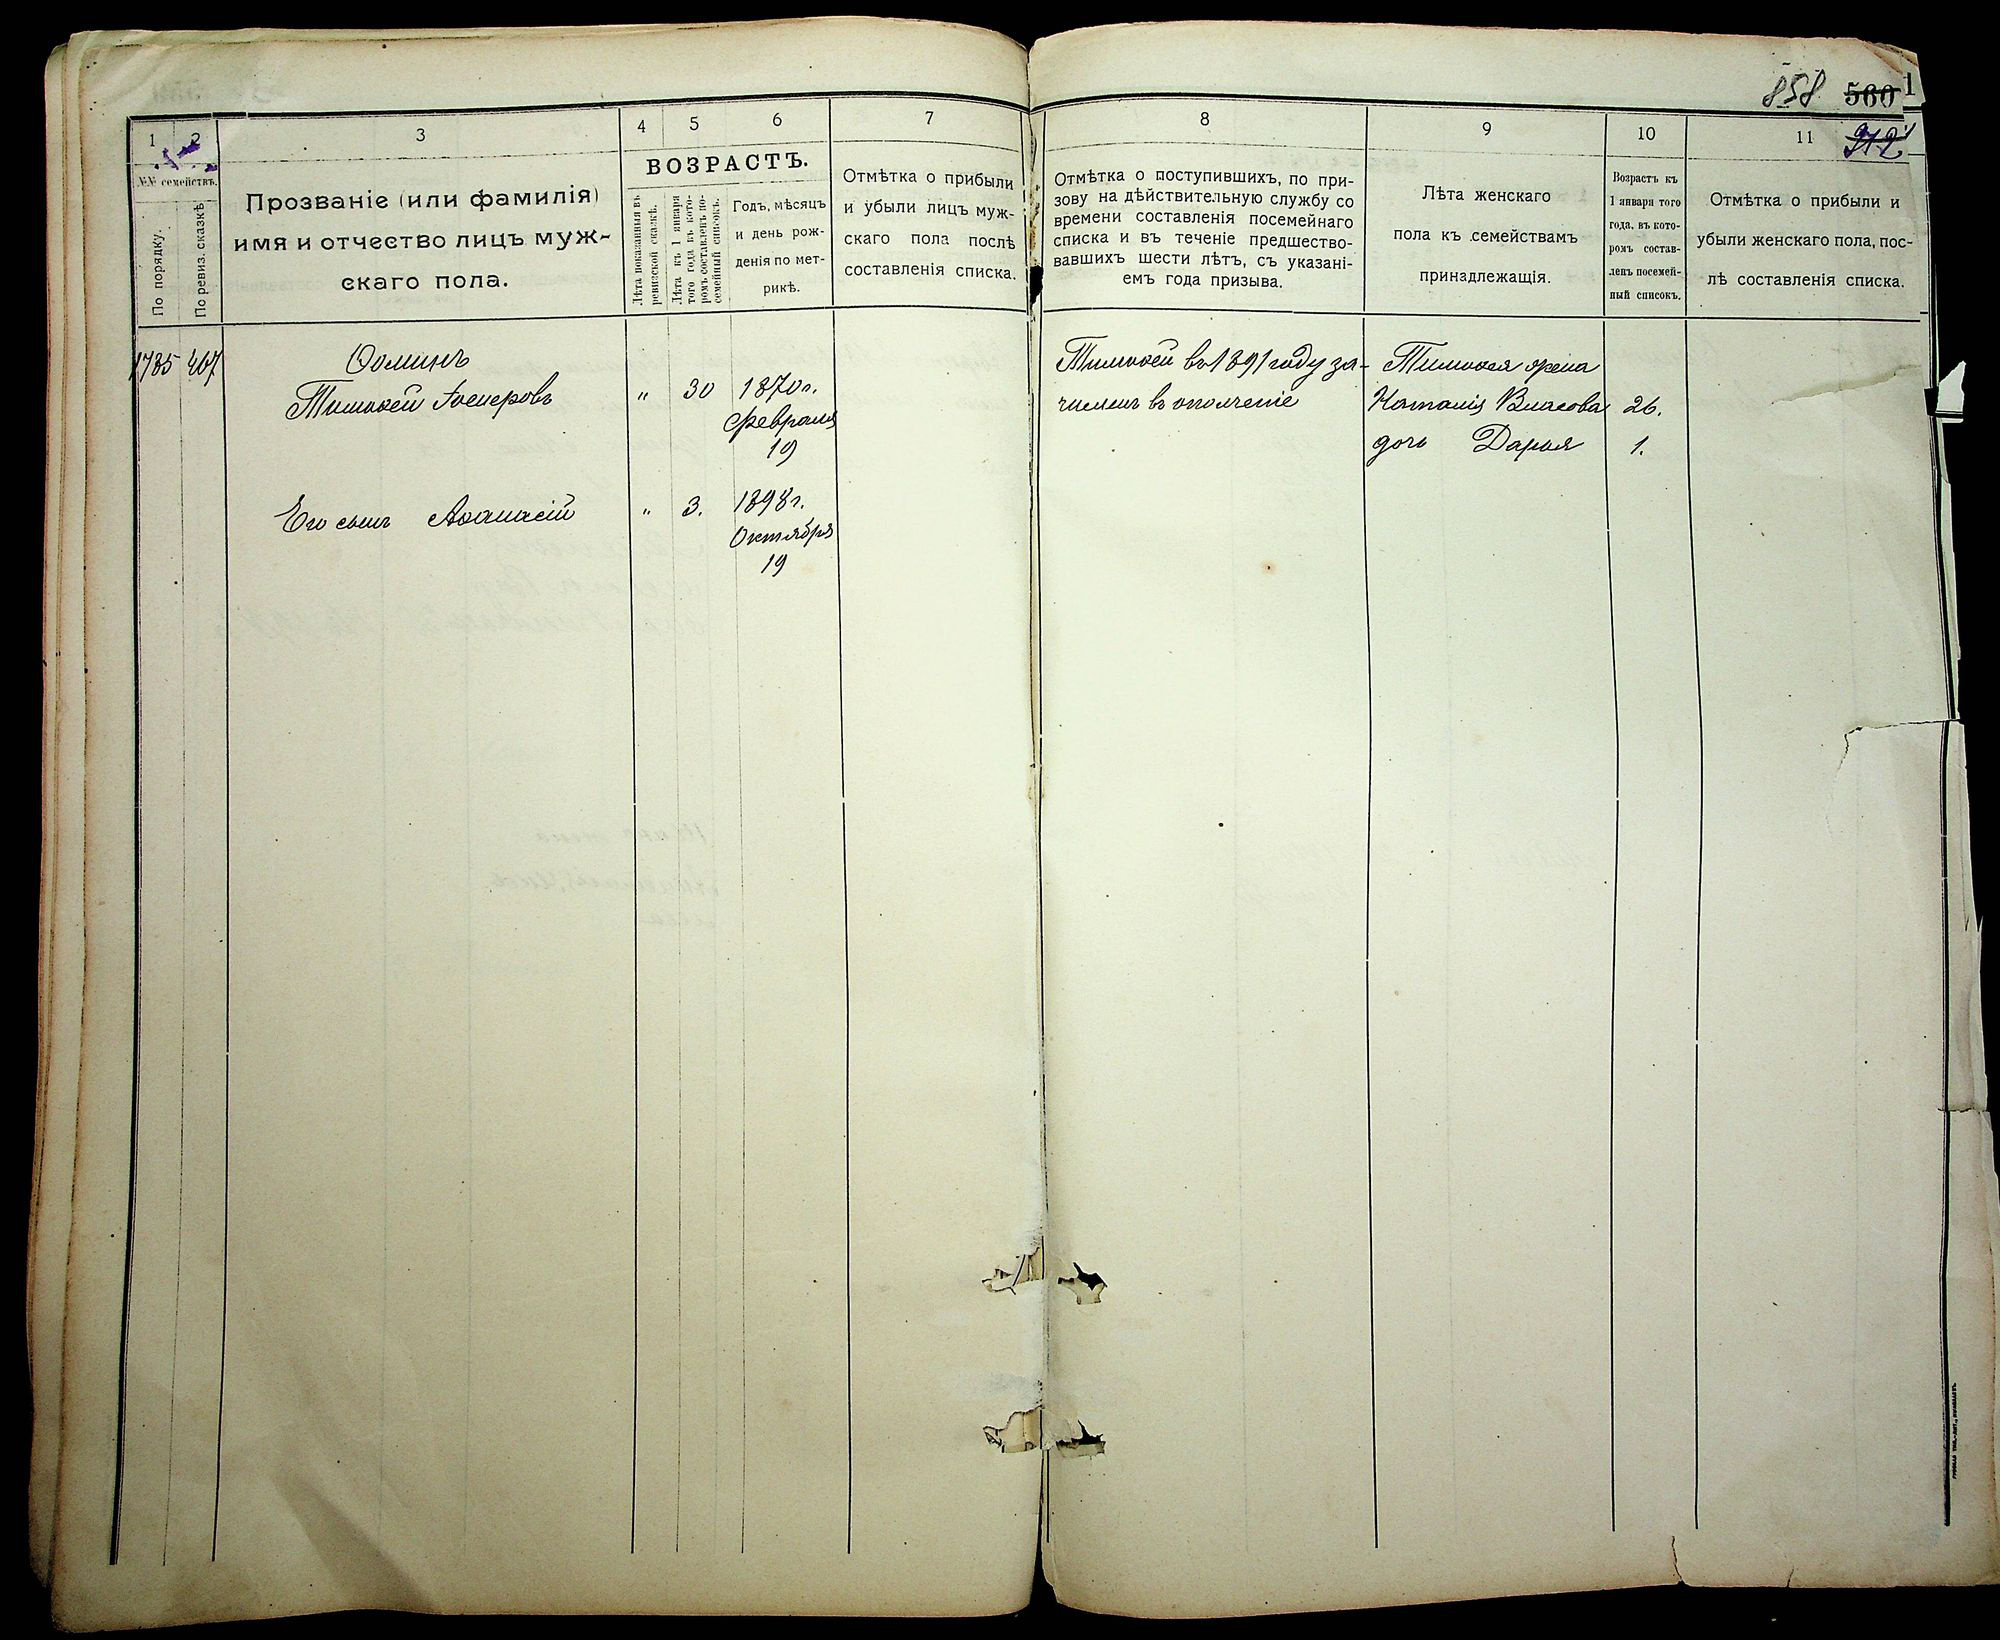 858 560 1
1 2 3 4 5 6 7 8 9 10 11 312
№№ семействъ.
По порядку.
По ревиз. сказкѣ
Прозваніе (или фамилія)
имя и отчество лицъ муж-
скаго пола.
ВОЗРАСТЪ.
Лѣта показанныя въ
ревизской сказкѣ.
Лѣта къ 1 января
того года въ кото-
ромъ составленъ по-
семейный списокъ.
Годъ, мѣсяцъ
и день рож-
денія по мет-
рикѣ.
Отмѣтка о прибыли
и убыли лицъ муж-
скаго пола послѣ
составленія списка.
Отмѣтка о поступившихъ, по при-
зову на дѣйствительную службу со
времени составленія посемейнаго
списка и въ теченіе предшество-
вавшихъ шести лѣтъ, съ указані-
емъ года призыва.
Лѣта женскаго
пола къ семействамъ
принадлежащія.
Возрастъ къ
1 января того
года, въ кото-
ромъ состав-
ленъ посемей-
ный списокъ.
Отмѣтка о прибыли и
убыли женскаго пола, пос-
лѣ составленія списка.
1785 467 Ѳоминъ
Тимоѳей " 30 1870 г.
Февраля
19
Его сынъ Аѳанасій " 3. 1898 г.
Октября
19
Тимоѳей въ 1891 году за-
численъ въ ополченіе
Тимоѳея жена
Наталія Власова 26.
дочь Дарья 1.